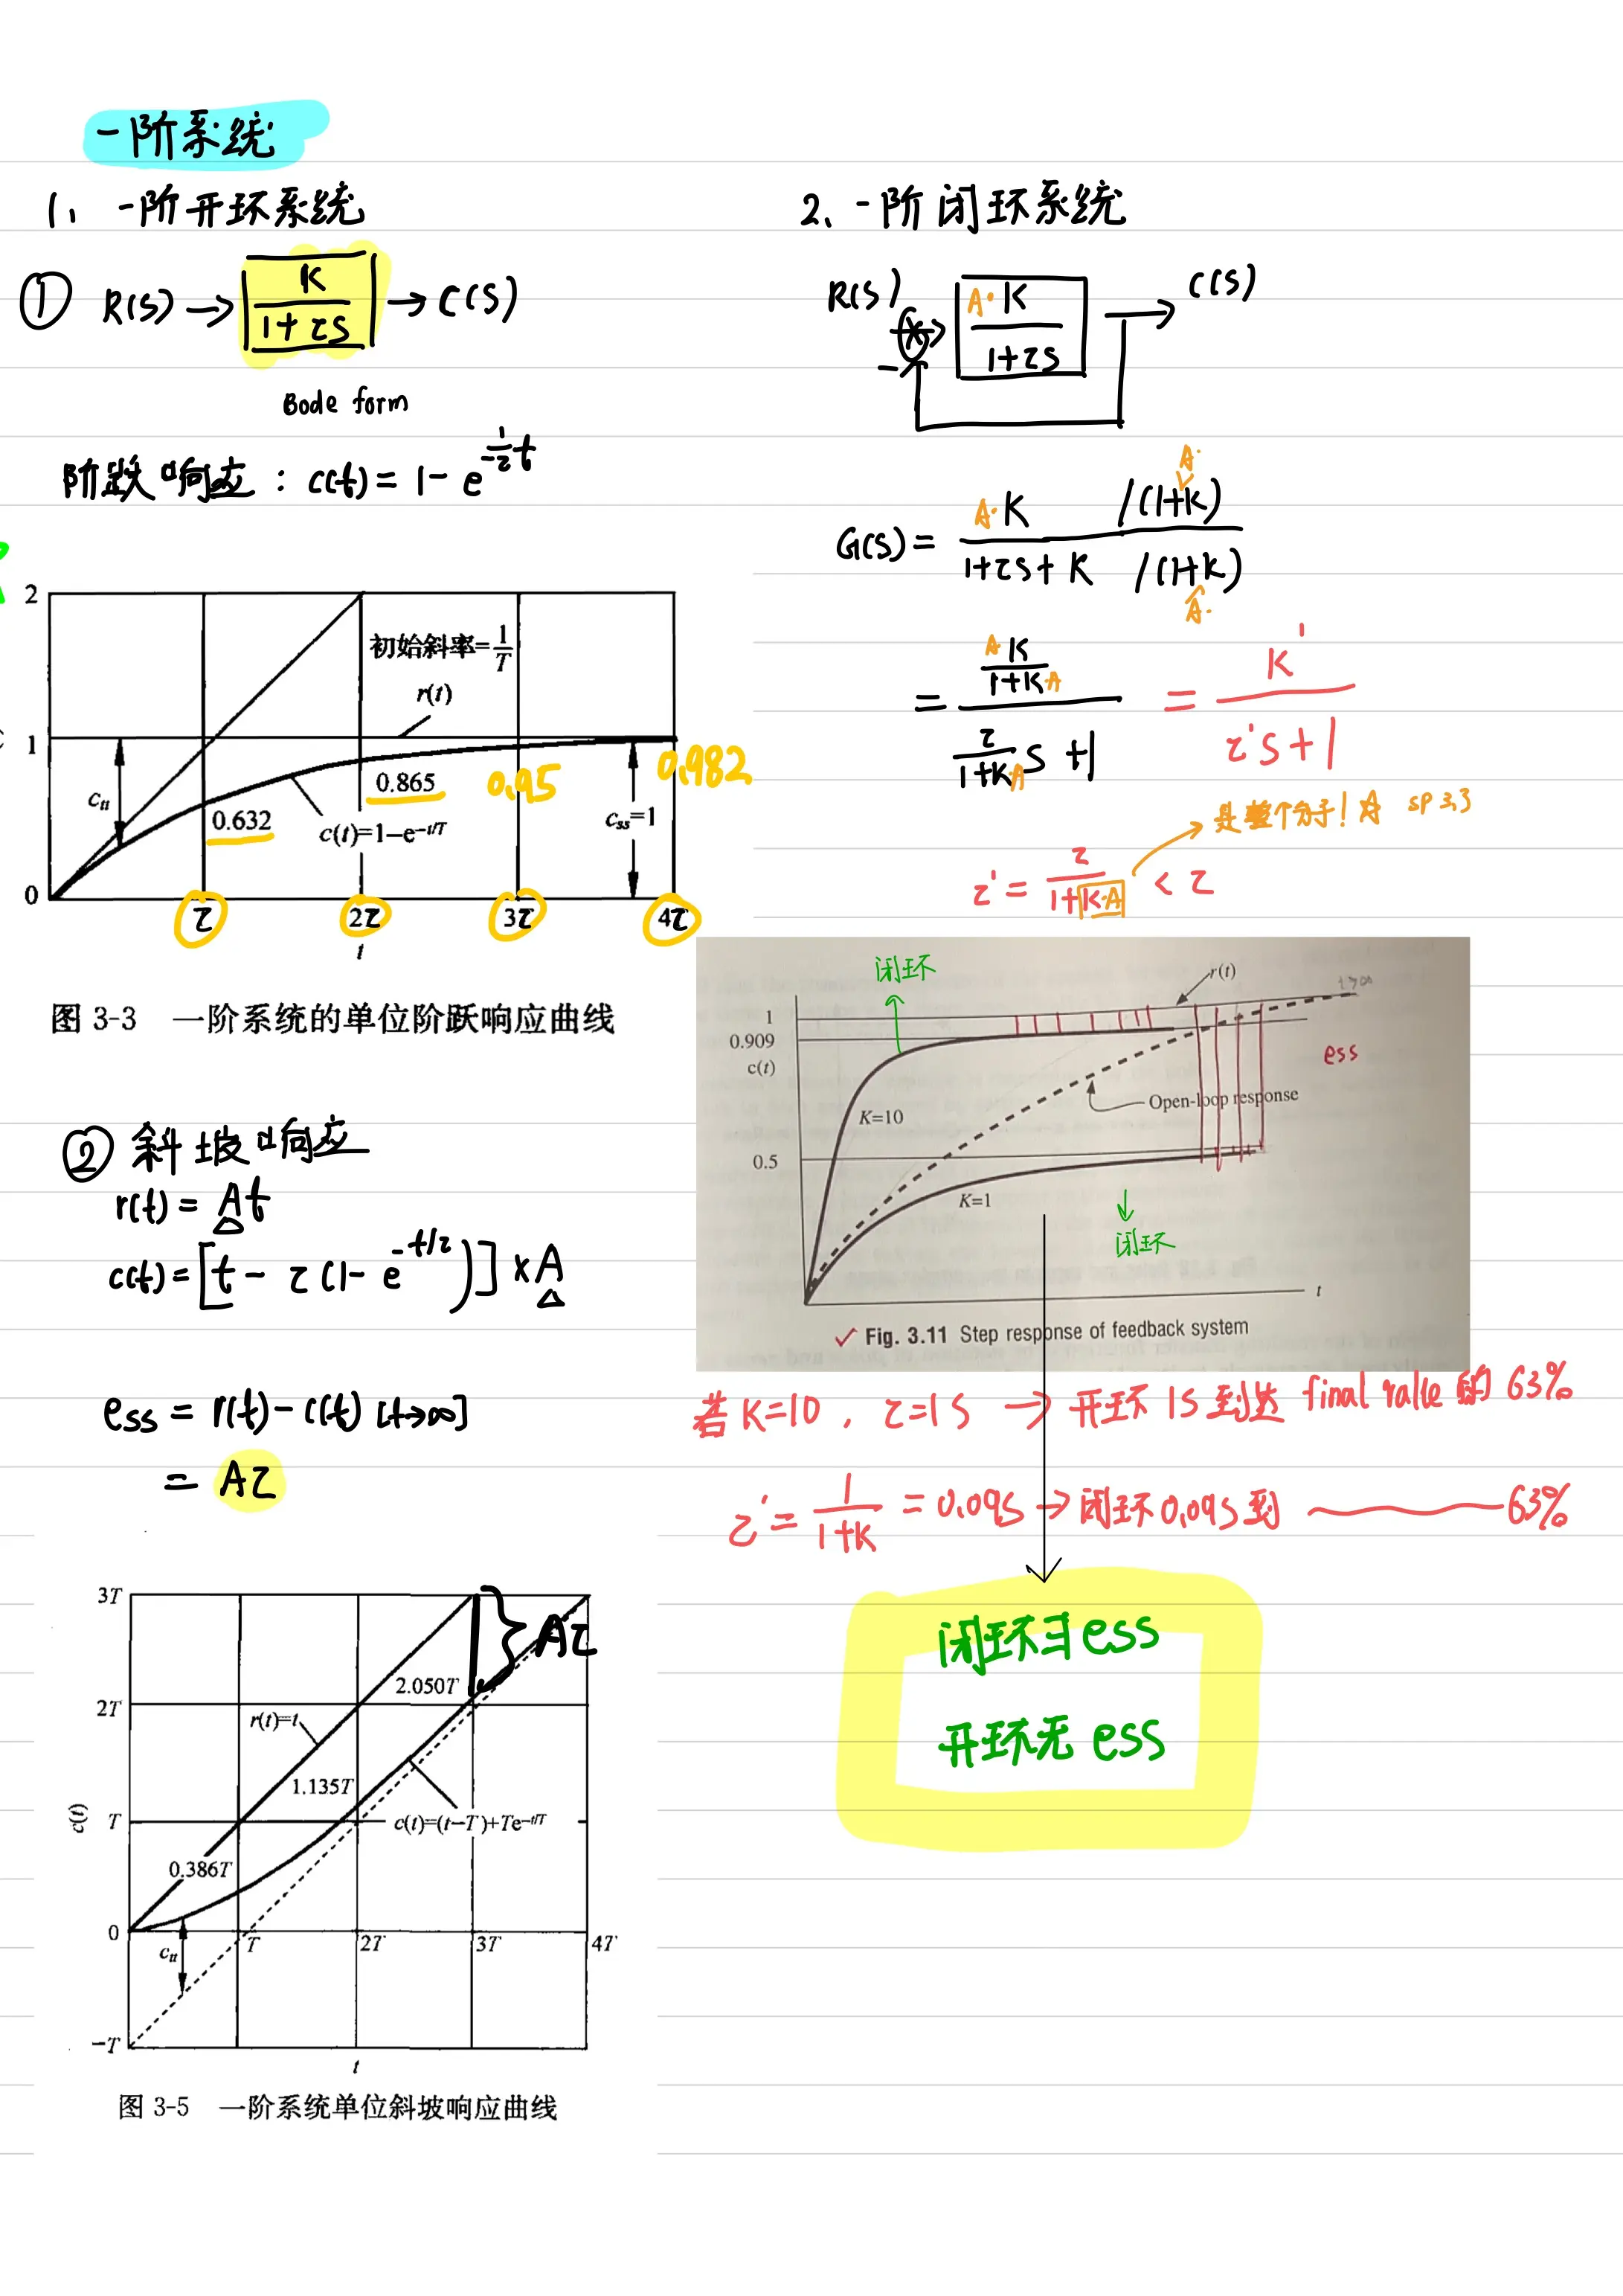 一阶系统
1、一阶开环系统
① R(s) → K / 1+τs → C(s)
Bode form
阶跃响应：c(t) = 1 - e^{-1/τ t}
2
初始斜率=1/T
r(t)
1
c_tt
0.632
0.865
0.95
0.982
c(t)=1-e^{-t/T}
c_ss=1
0
τ 2τ 3τ 4τ
t
图 3-3 一阶系统的单位阶跃响应曲线
② 斜坡响应
r(t) = At
c(t) = [t - τ(1 - e^{-t/τ})] × A
ess = r(t) - c(t) [t→∞]
= Aτ
3T
Aτ
2.050T
2T
r(t)=t
1.135T
c(t)
T
c(t)=(t-T)+Te^{-t/T}
0.386T
0
c_tt
T 2T 3T 4T
-T
t
图 3-5 一阶系统单位斜坡响应曲线
2、一阶闭环系统
R(s) - A·K / 1+τs → C(s)
G(s) = A·K /(1+A·K) / 1+τs+K /(1+A·K)
= A·K/1+KA / τ/1+KA s + 1 = K' / τ's+1
是整个分子！ sp 3.3
τ' = τ / 1+K·A < τ
闭环
r(t)
t→∞
1
0.909
c(t)
ess
K=10
Open-loop response
0.5
K=1
闭环
t
✓ Fig. 3.11 Step response of feedback system
若 K=10，τ=1s → 开环 1s 到达 final value 的 63%
τ' = 1 / 1+K = 0.09s → 闭环 0.09s 到 63%
闭环∃ ess
开环无 ess